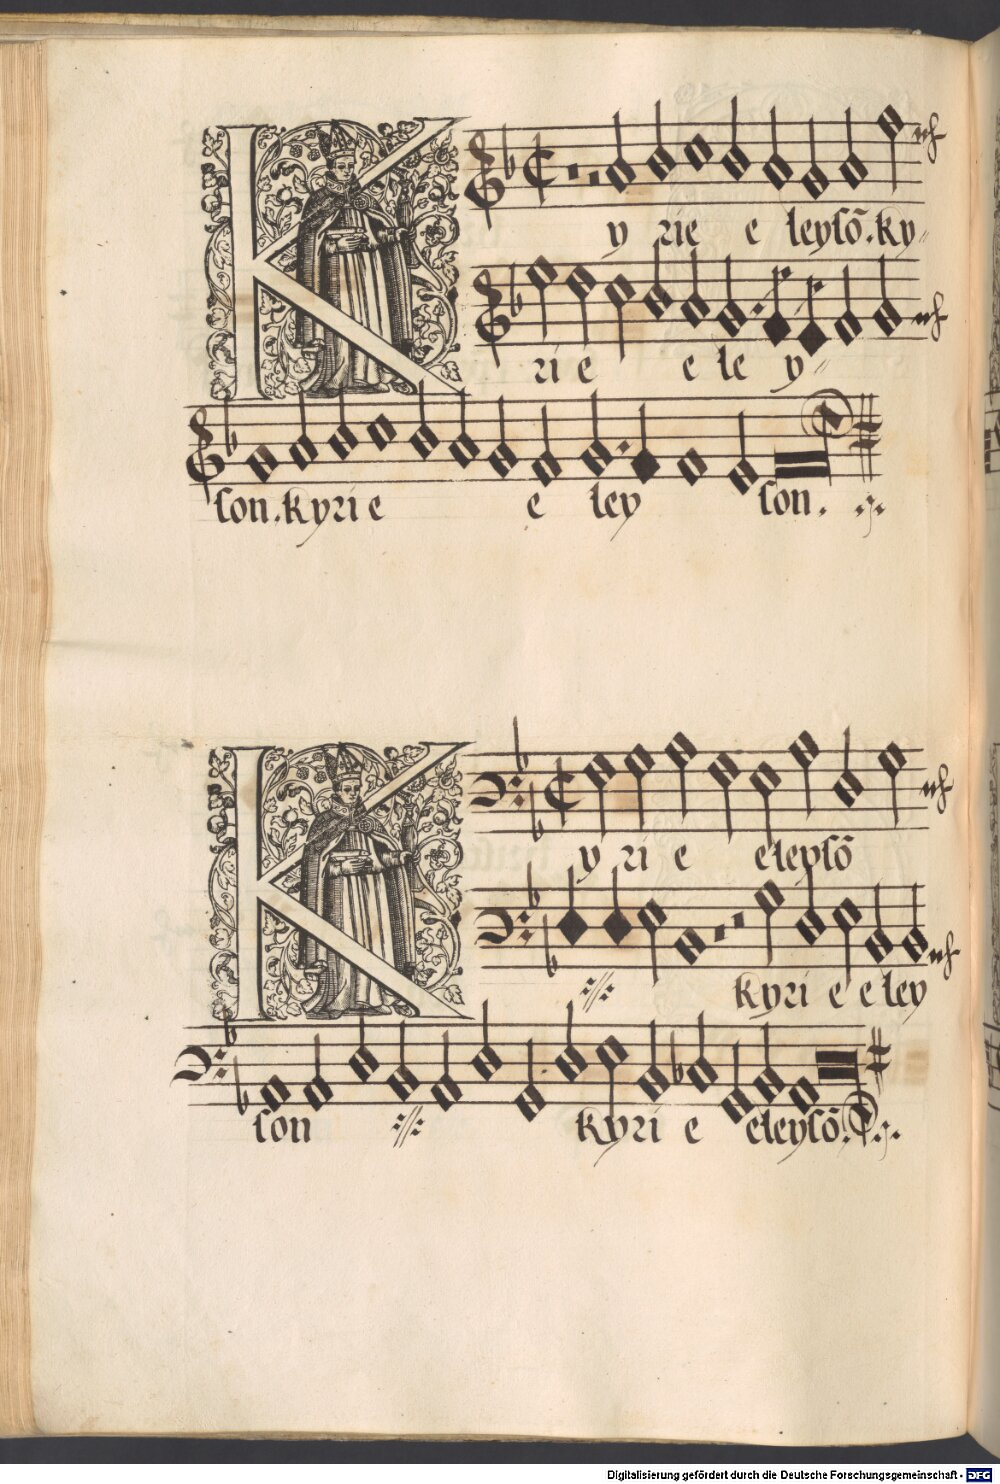 K yrie e leysō. ky
rie e le y
son. kyrie e ley son.
K yrie eleysō
kyri e e ley
son kyri e eleysō.
Digitalisierung gefördert durch die Deutsche Forschungsgemeinschaft - DFG